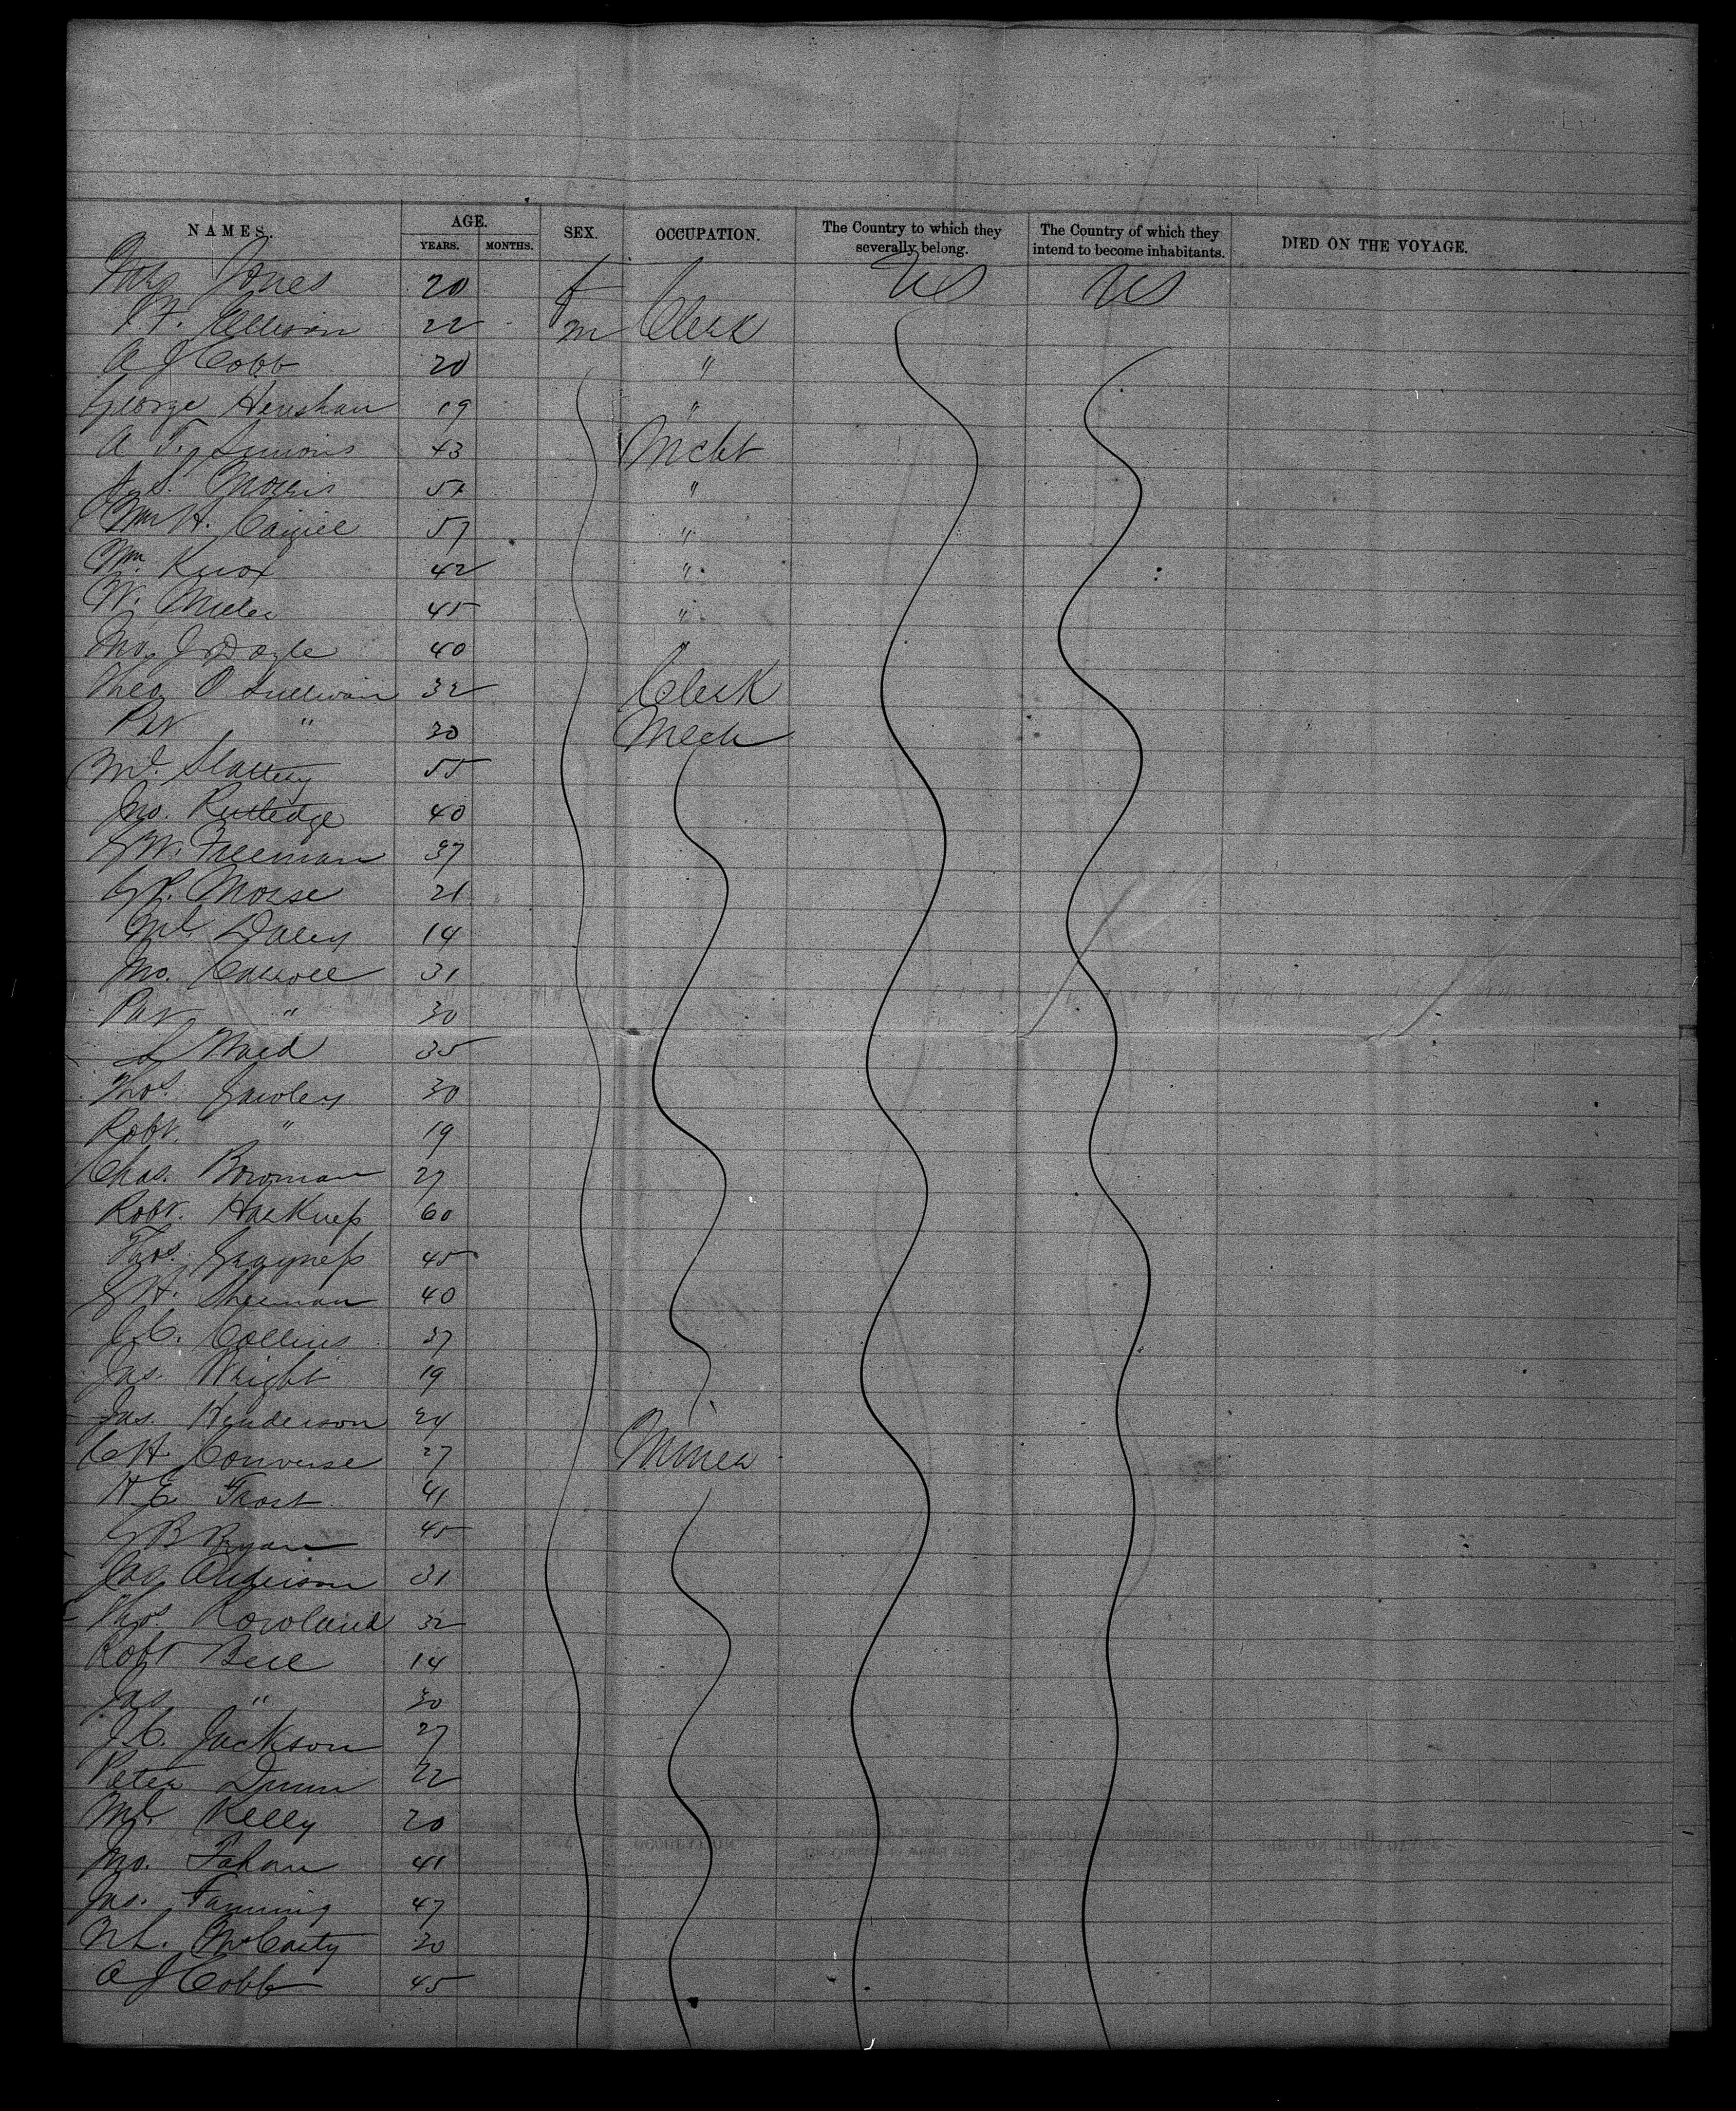 NAMES. AGE. SEX. OCCUPATION. The Country to which they severally belong. The Country of which they intend to become inhabitants. DIED ON THE VOYAGE.
YEARS. MONTHS.
Mrs Jones 20 f US US
Ellison 22 m Clerk
A J Cobb 20 "
George Henshaw 19 "
A T. Simons 43 Mcht
J. S. Morris 57 "
Wm H. 57 "
Wm Knox 42 "
W. Miller 45 "
Jno J Doyle 40 "
Theo O Sullivan 32 Clerk
Pat " 30 Mech
Ml. Slattery 55
Jno. Rutledge 40
G W. Freeman 37
G P. Morse 21
Ml. Daley 14
Jno. Carroll 31
Pat " 30
L Ward 35
Thos. Gawley 30
Robt. " 19
Chas. Bowman 27
Robt. Harkness 60
Thos. 45
G H. Sherman 40
J. C. Collins 37
Jas. Wright 19
Jas. Henderson 24
C H. Converse 27 Miner
H E Frost 41
G B Bryan 45
Jas Anderson 31
Thos. Rowland 32
Robt Bell 14
Jas " 30
J. C. Jackson 27
Peter Dunn 22
Ml. Kelly 20
Jno. Fahan 41
Jas. Fanning 47
McCarty 30
A J Cobb 45